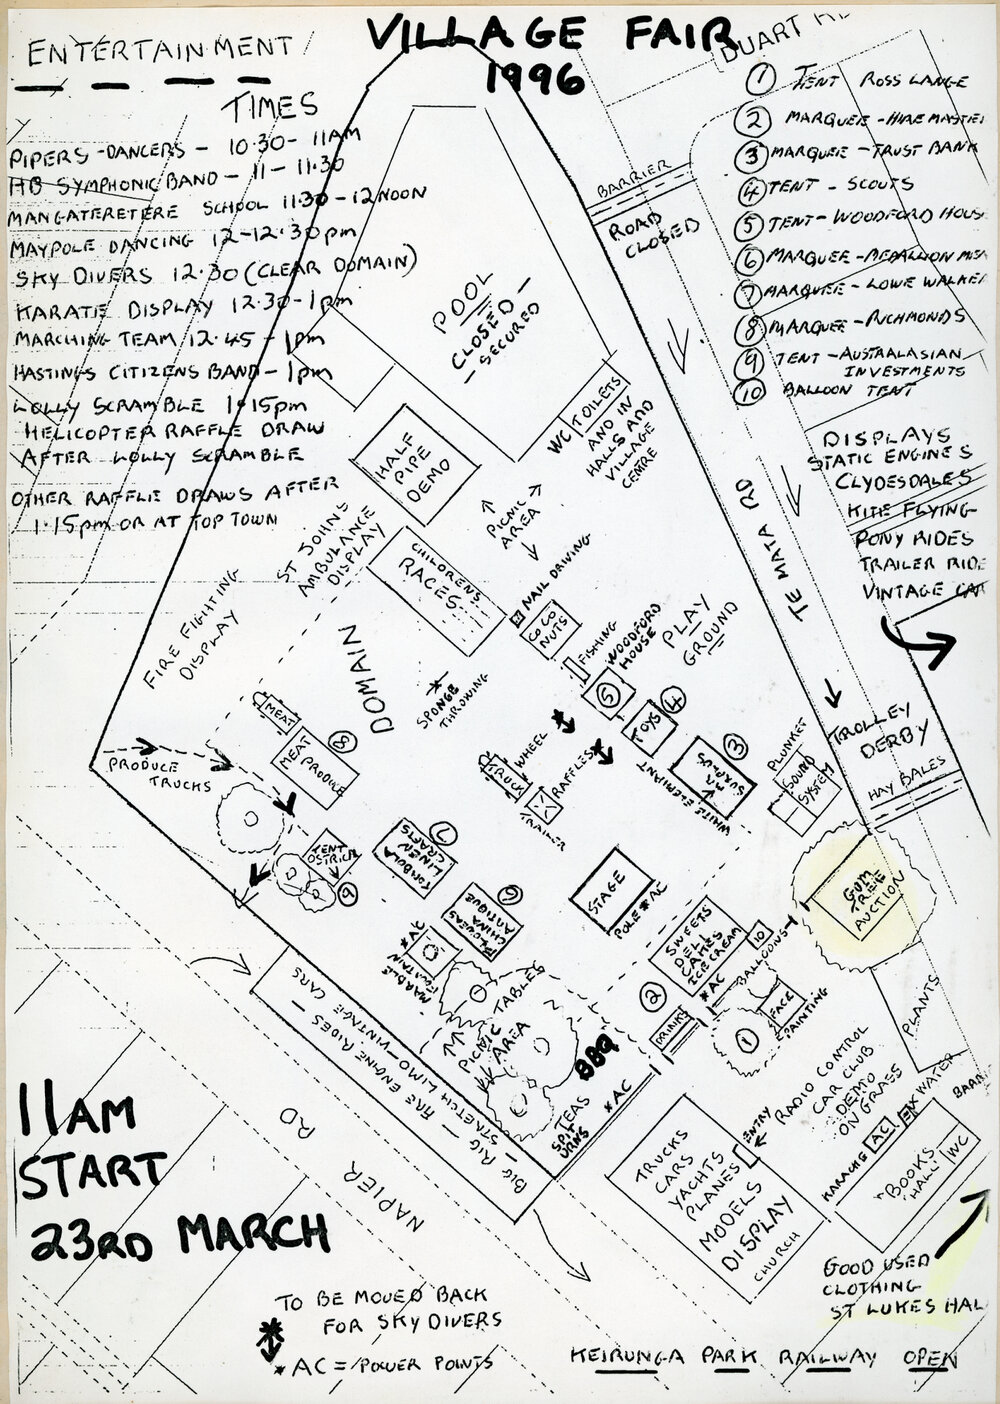 VILLAGE FAIR
1996
ENTERTAINMENT
TIMES
PIPERS - DANCERS - 10.30 - 11AM
HB SYMPHONIC BAND - 11 - 11.30
MANGATERETERE SCHOOL 11.30 - 12 NOON
MAYPOLE DANCING 12 - 12.30pm
SKY DIVERS 12.30 (CLEAR DOMAIN)
KARATE DISPLAY 12.30 - 1pm
MARCHING TEAM 12.45 - 1pm
HASTINGS CITIZENS BAND - 1pm
LOLLY SCRAMBLE 1.15pm
HELICOPTER RAFFLE DRAW
AFTER LOLLY SCRAMBLE
OTHER RAFFLE DRAWS AFTER
1.15pm OR AT TOP TOWN
DUART
1 TENT ROSS LANGE
2 MARQUEE - HIRE MASTE
3 MARQUEE - TRUST BANK
4 TENT - SCOUTS
5 TENT - WOODFORD HOUS
6 MARQUEE - MEDALLION
7 MARQUEE - LOWE WALKE
8 MARQUEE - RICHMONDS
9 TENT - AUSTRALASIAN
INVESTMENTS
10 BALLOON TENT
DISPLAYS
STATIC ENGINES
CLYDESDALES
KITE FLYING
PONY RIDES
TRAILER RIDE
VINTAGE CAR
BARRIER
ROAD
CLOSED
POOL
CLOSED -
- SECURED
WC TOILETS
AND IN
HALLS AND
VILLAGE
CENTRE
HALF
PIPE
DEMO
PICNIC
AREA
ST JOHNS
AMBULANCE
DISPLAY
CHILDRENS
RACES
NAIL DRIVING
COCO
NUTS
FISHING
WOODFORD
HOUSE
5
PLAY
GROUND
TE MATA RD
FIRE FIGHTING
DISPLAY
DOMAIN
SPONGE
THROWING
MEAT
MEAT
PRODUCE
8
PRODUCE
TRUCKS
WHEEL
TRUCK
RAFFLES
TRAILER
TOYS
4
3
SURPLUS
WHITE ELEPHANT
PLUNKET
SOUND
SYSTEM
TROLLEY
DERBY
HAY BALES
TENT
OSTRICH
9
7
TOMBOLA
LINEN
CRAFTS
6
FLOWERS
CHINA
ANTIQUE
*AC
MARBLE
FOUNTAIN
STAGE
POLE *AC
SWEETS
DELI
CAKES
ICE CREAM
*AC
10
BALLOONS
GUM
TREE
AUCTION
2
DRINKS
1
FACE
PAINTING
PLANTS
PICNIC TABLES
PICNIC
AREA
BBQ
TEAS
SPIT
URNS
*AC
BIG RIG - FIRE ENGINE RIDES -
STRETCH LIMO - VINTAGE CARS
RADIO CONTROL
CAR CLUB
DEMO
ON GRASS
ENTRY
TRUCKS
CARS
YACHTS
PLANES
MODELS
DISPLAY
CHURCH
KARAOKE
AC
WATER
BARR
"BOOKS
HALL"
WC
GOOD USED
CLOTHING
ST LUKES HAL
11AM
START
23RD MARCH
NAPIER RD
TO BE MOVED BACK
FOR SKY DIVERS
* AC = POWER POINTS
KEIRUNGA PARK RAILWAY OPEN